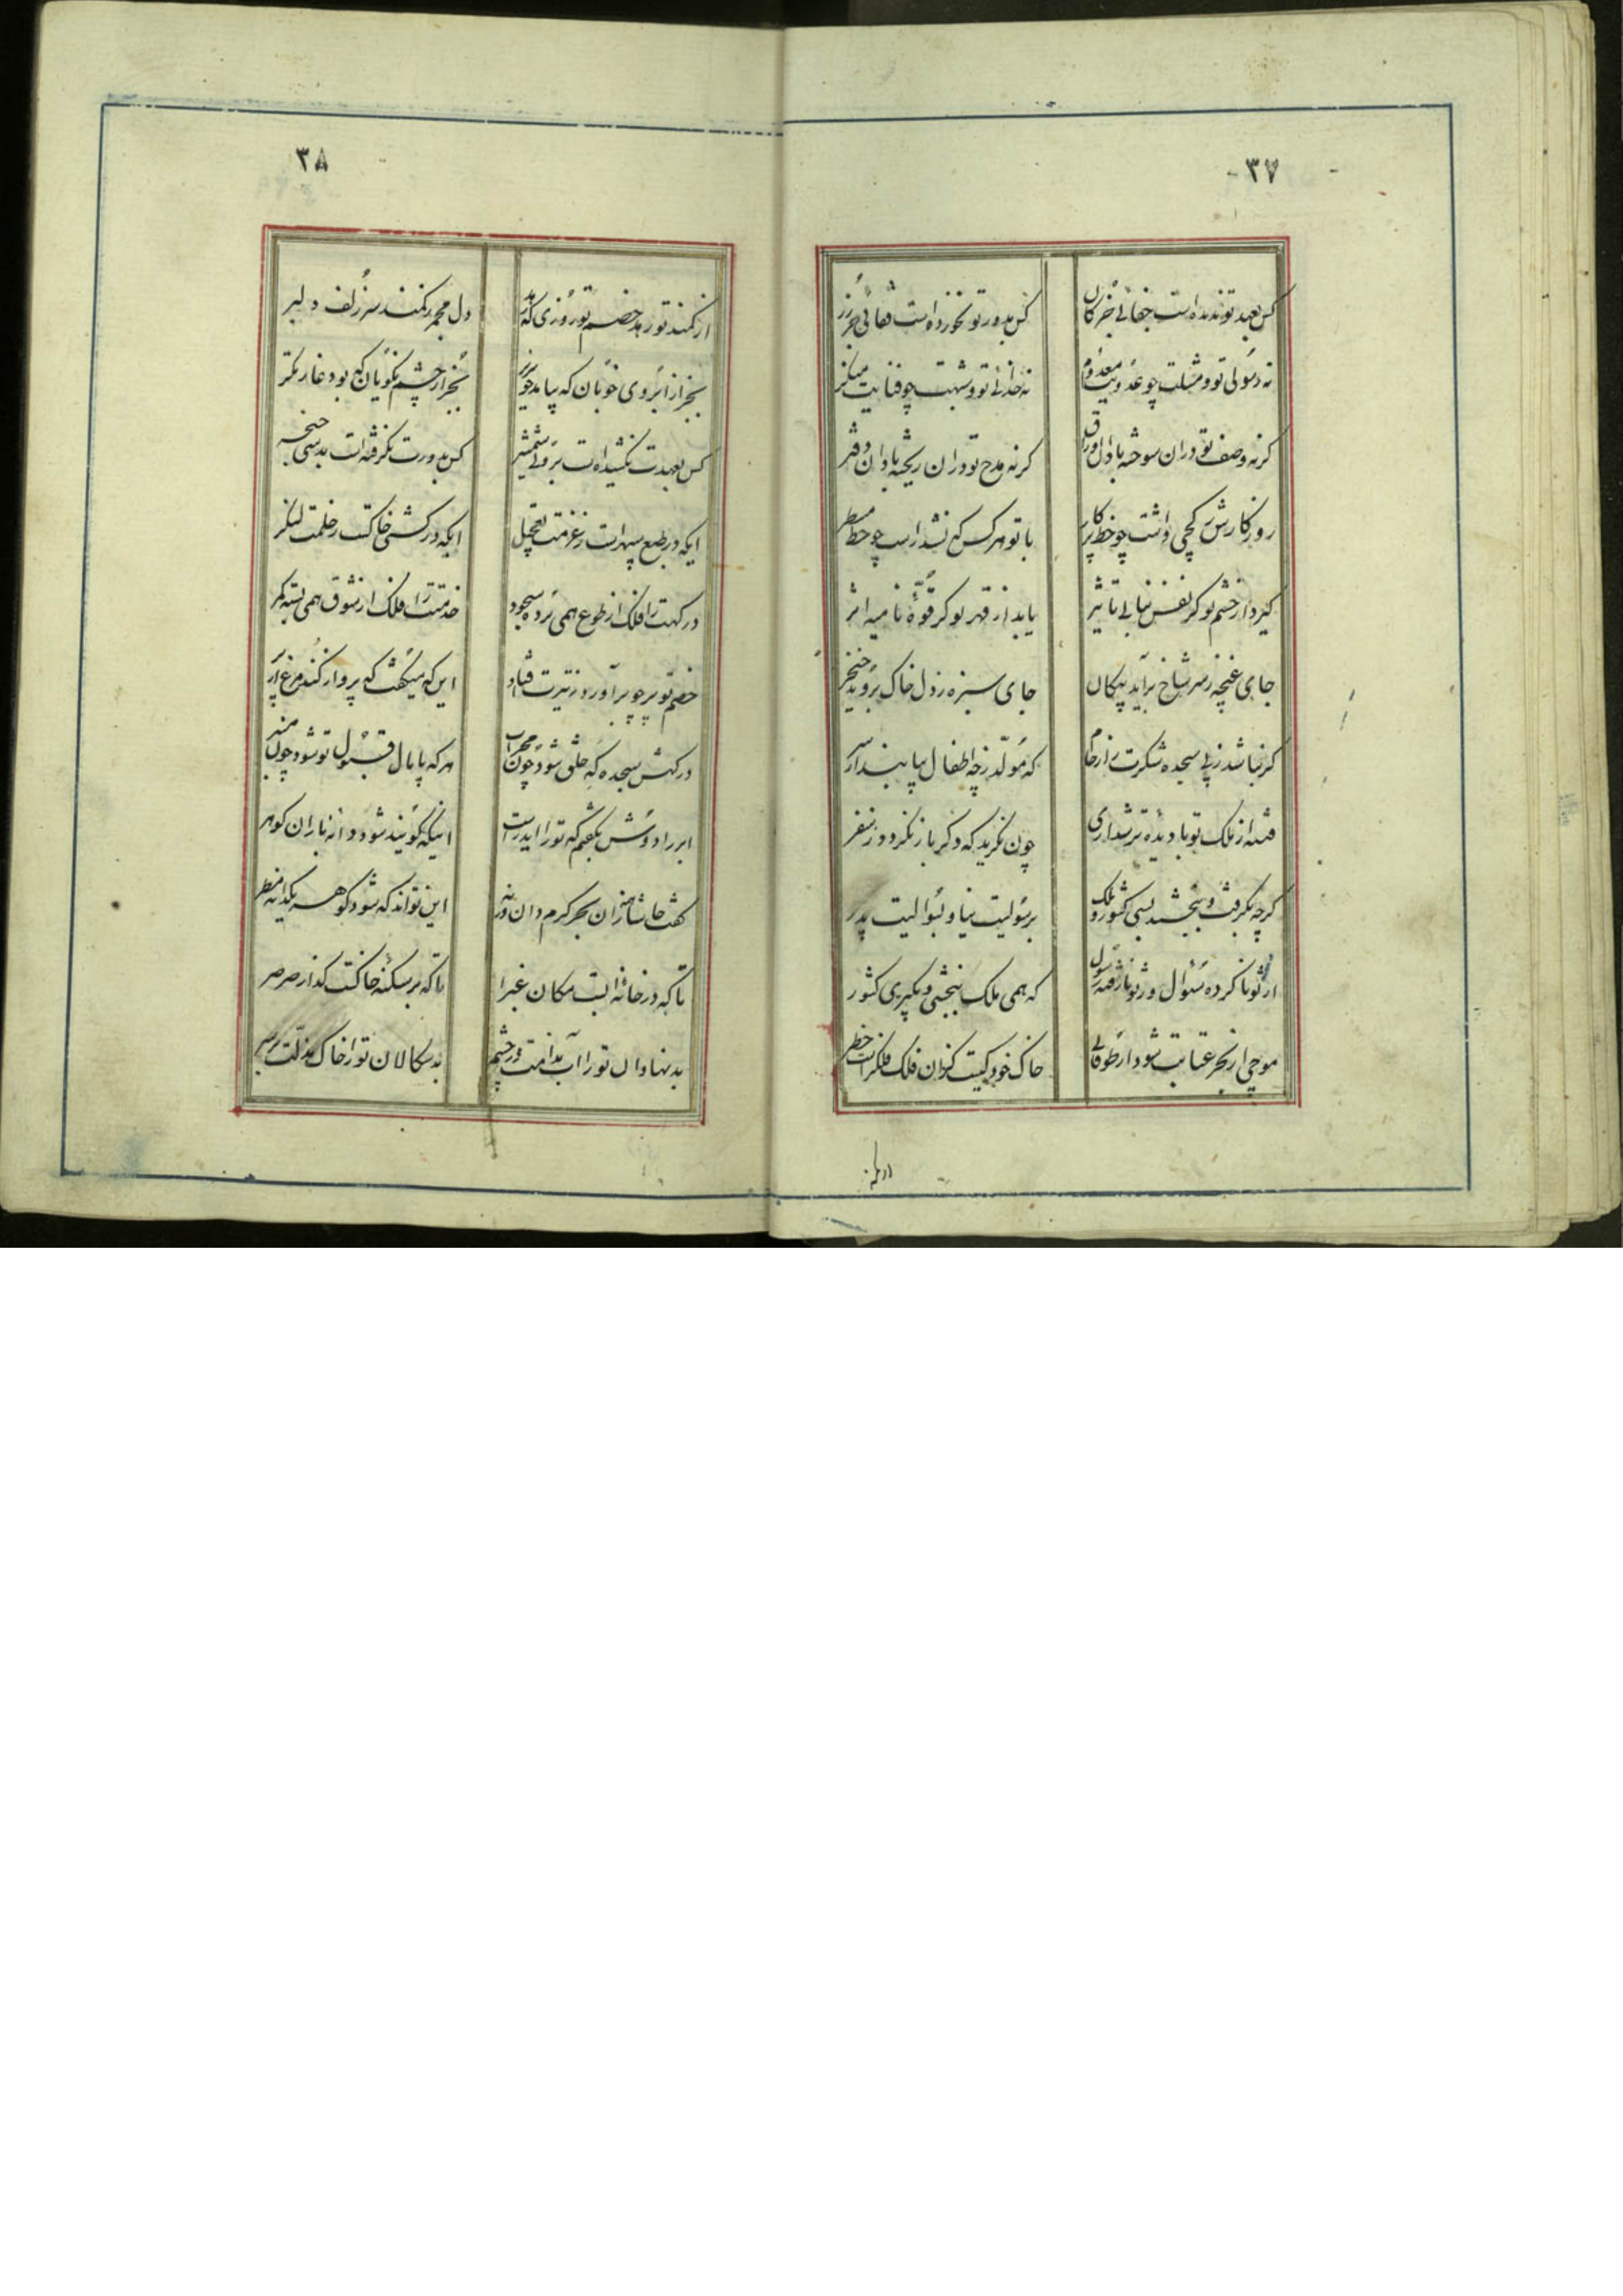 ۳۷
کس بعهد تو ندیده است جفائی جز کان
کس بدور تو نخورده است قفائی جز زر
نه رسولی تو و مثلت چو عدویت معدوم
نه خدائی تو و شبهت چو فنایت منکر
گر نه وصف تو در آن سوخته باد آن اوراق
گر نه مدح تو در آن ریخته باد آن دفتر
روزگارش کجی داشت چو خط پرگار
با تو هر کس که نشد راست چو خط مسطر
گیرد از خشم تو گر نفس نباتی تاثیر
یابد از قهر تو گر قوّهٔ نامیه اثر
جای غنچه ز سر شاخ برآید پیکان
جای سبزه ز دل خاک بروید خنجر
گر نباشد ز پی سجده شکرت ز ارحام
که مولّد ز چه اطفال بیابند از سر
فتنه از ملک تو با دیده تر شد آری
چون نگرید که دگر باز نگردد ز سفر
گرچه بگرفت و ببخشید بسی کشور و ملک
برسولیت نیا و بتوالیت پدر
از تو نا کرده سئوال و ز تو نا رفته رسول
که همی ملک ببخشی و بگیری کشور
موجی از بحر عتابت شود ار طوفانی
خاک خود کیست کز آن فلک فلک راست خطر
۳۸
از کمند تو رهد خصم تو روزی که رهد
دل مجمر ز کمند سر زلف دلبر
بجز از ابروی خوبان که بیامد خونریز
بجز از چشم نکویان که بود غارتگر
کس بعهدت نکشیده است بروئی شمشیر
کس بدورت نگرفته است بدستی خنجر
ایکه در طبع سپهر است ز عزمت تعجیل
ایکه در کشتی خاکست ز حلمت لنگر
درگهت را فلک از طوع همی برده سجود
خدمتت را فلک از شوق همی بسته کمر
خصم تو بر چو برآورد ز تیرت فتاد
این که میگفت که پرواز کند مرغ از پر
درگهش سجده‌گه خلق شود چون محراب
هر که پامال قبول تو شود چون منبر
ابر را دوش بگفتم که تو را این دست
اینکه گویند شود دانه باران گوهر
گفت حاشا مگر از آن بحر کرم دان ورنه
این تواند که شود گوهر یکدانه مطر
تا که در خانهٔ آبست مکان غبرا
تا که بر سکنهٔ خاکست گذار صرصر
بد نهادان تو را آب ندامت در چشم
بد سگالان تو را خاک مذلّت بر سر